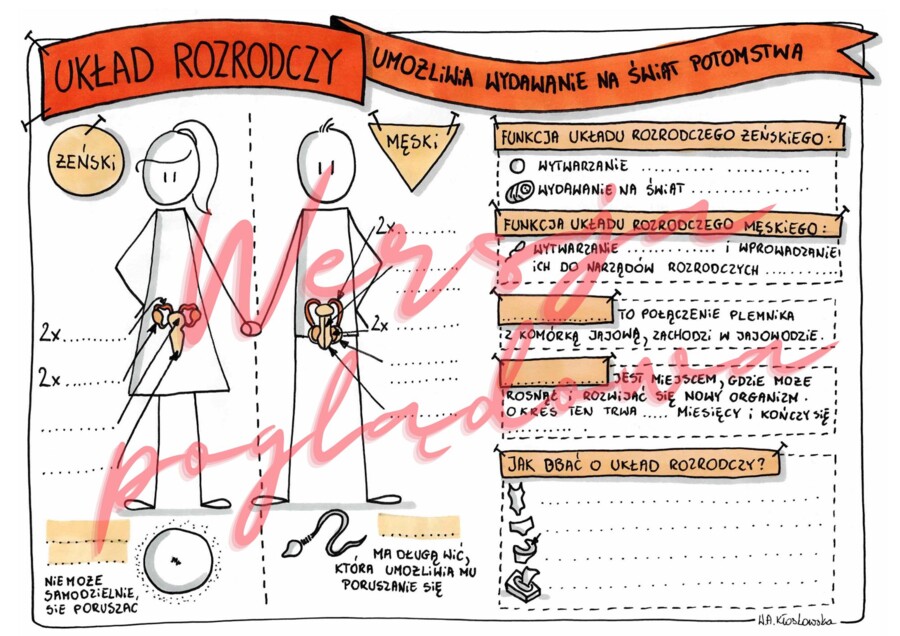 UKŁAD ROZRODCZY
UMOŻLIWIA WYDAWANIE NA ŚWIAT POTOMSTWA
ŻEŃSKI
MĘSKI
2x
2x
2x
2x
NIE MOŻE
SAMODZIELNIE,
SIĘ PORUSZAĆ
MA DŁUGĄ WIĆ,
KTÓRA UMOŻLIWIA MU
PORUSZANIE SIĘ
FUNKCJA UKŁADU ROZRODCZEGO ŻEŃSKIEGO:
WYTWARZANIE
WYDAWANIE NA ŚWIAT
FUNKCJA UKŁADU ROZRODCZEGO MĘSKIEGO:
WYTWARZANIE I WPROWADZANIE
ICH DO NARZĄDÓW ROZRODCZYCH
TO POŁĄCZENIE PLEMNIKA
Z KOMÓRKĄ JAJOWĄ, ZACHODZI W JAJOWODZIE.
JEST MIEJSCEM, GDZIE MOŻE
ROSNĄĆ I ROZWIJAĆ SIĘ NOWY ORGANIZM.
OKRES TEN TRWA ..... MIESIĘCY I KOŃCZY SIĘ
JAK DBAĆ O UKŁAD ROZRODCZY?
Wersja
poglądowa
H.A. Kłosłowska